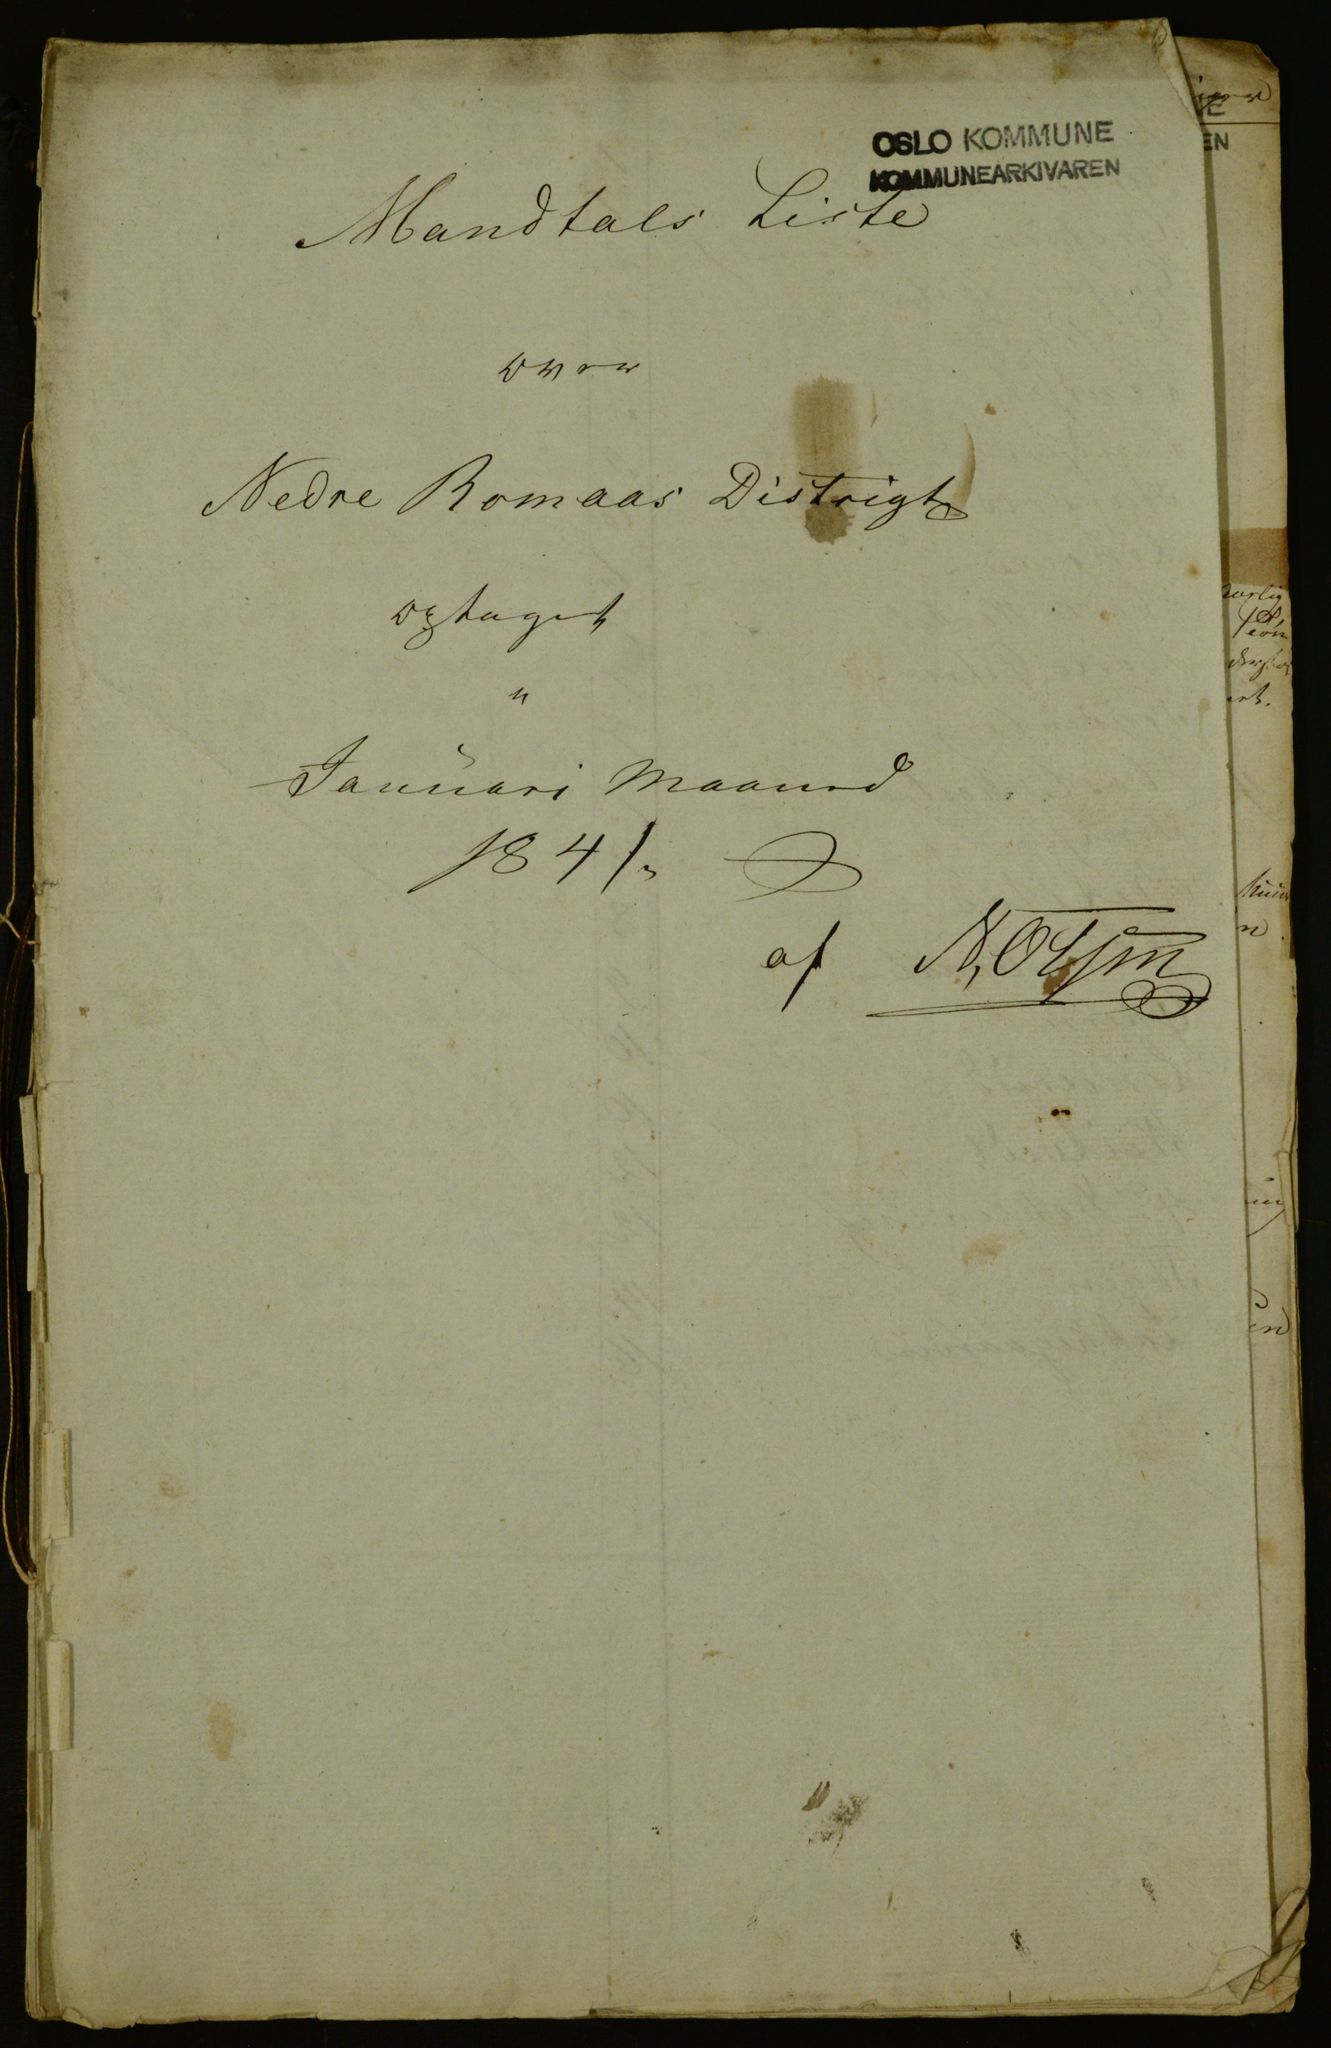 OSLO KOMMUNE
KOMMUNEARKIVAREN
Mandtals Liste
over
Nedre Romaas Distrigt
optaget
"
Januari Maaned
1841.
af
EN